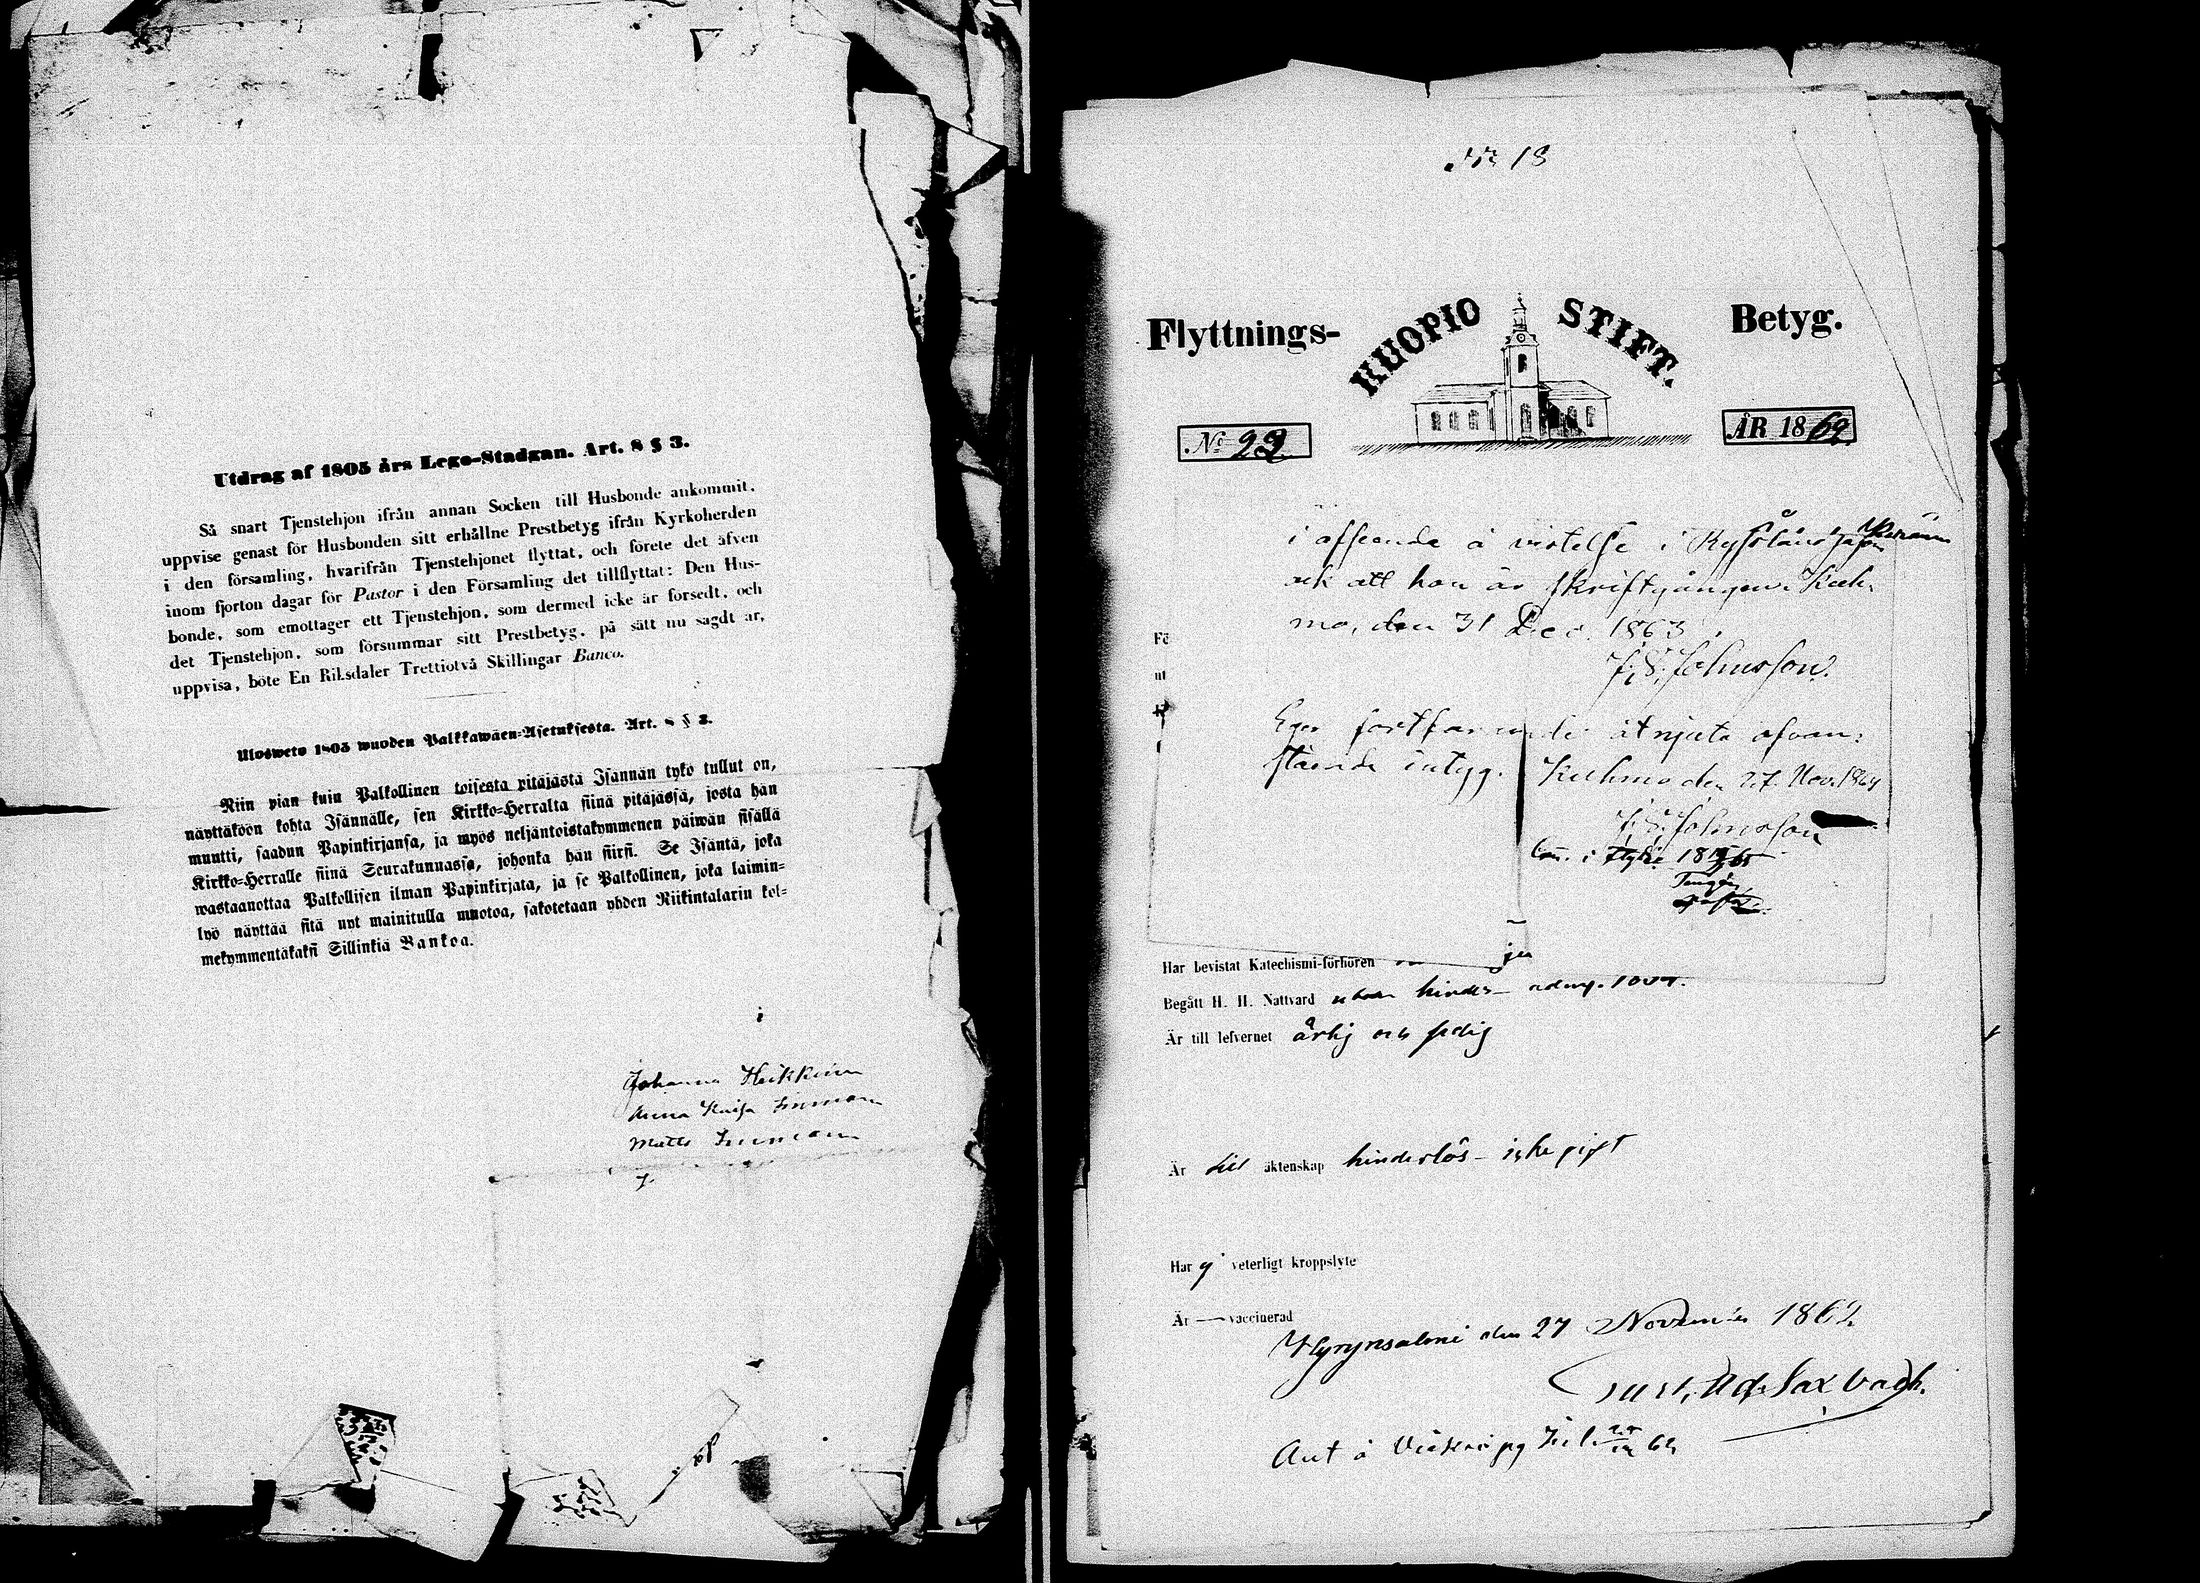 Utdrag af 1805 års Lego-Stadgan. Art. 8 § 3.
Så snart Tjenstehjon ifrån annan Socken till Husbonde ankommit,
uppvise genast för Husbonden sitt erhållne Prestbetyg ifrån Kyrkoherden
i den församling, hvarifrån Tjenstehjonet flyttat, och förete det äfven
inom fjorton dagar för Pastor i den Församling det tillflyttat: Den Hus-
bonde, som emottager ett Tjenstehjon, som dermed icke är försedt, och
det Tjenstehjon, som försummar sitt Prestbetyg, på sätt nu sagdt är,
uppvisa, böte En Riksdaler Trettiotvå Skillingar Banco.
Uloswető 1805 wuoden Palkkawäen-Asetuksesta. Art. 8 § 3.
Niin pian kuin Palkollinen toisesta pitäjästä Isännän tykö tullut on,
näyttäköön kohta Isännälle, sen Kirkko-Herralta siinä pitäjässä, josta hän
muutti, saadun Papinkirjansa, ja myös neljäntoistakymmenen päiwän sisällä
Kirkko-Herralle siinä Seurakunnassa, johonka hän siirsi. Se Isäntä, joka
wastaanottaa Palkollisen ilman Papinkirjata, ja se Palkollinen, joka laimin-
lyö näyttää sitä nyt mainitulla muotoa, sakotetaan yhden Riikintalarin kol-
mekymmentäkaksi Sillinkiä Bankoa.
Johanna Heikkinen
Anna Kaisa
Matts
№ 18
Flyttnings- KUOPIO STIFT. Betyg.
№ 23 ÅR 1862
i afseende å vistelse i Ryssland
och att hon är skriftgången. Kuh-
mo, den 31 Dec. 1863
Fö
J. S. Johnsson.
ut
Eger fortfarande åtnjuta ofvan-
stående intyg. Kuhmo den 27 Nov. 1864
J. S. Johnsson
Har bevistat Katechismi-förhören ja
Begått H. H. Nattvard utan hinder
Är till lefvernet ärlig och sedig
Är till äktenskap hinderlös – icke gift
Har ej veterligt kroppslyte
Är — vaccinerad
Hyrynsalmi den 27 November 1862